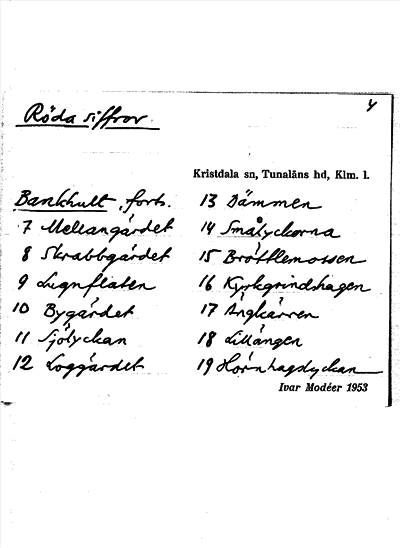 4
Röda siffror
Kristdala sn, Tunaläns hd, Klm. l.
Bankhult, forts.
7 Mellangärdet
8 Skrabbgärdet
9 Lugnflaten
10 Bygärdet
11 Sjölyckan
12 Loggärdet
13 Dämmen
14 Smålyckorna
15 Bröttlemossen
16 Kyrkgrindshagen
17 Ängkärren
18 Lillängen
19 Hornhagslyckan
Ivar Modéer 1953